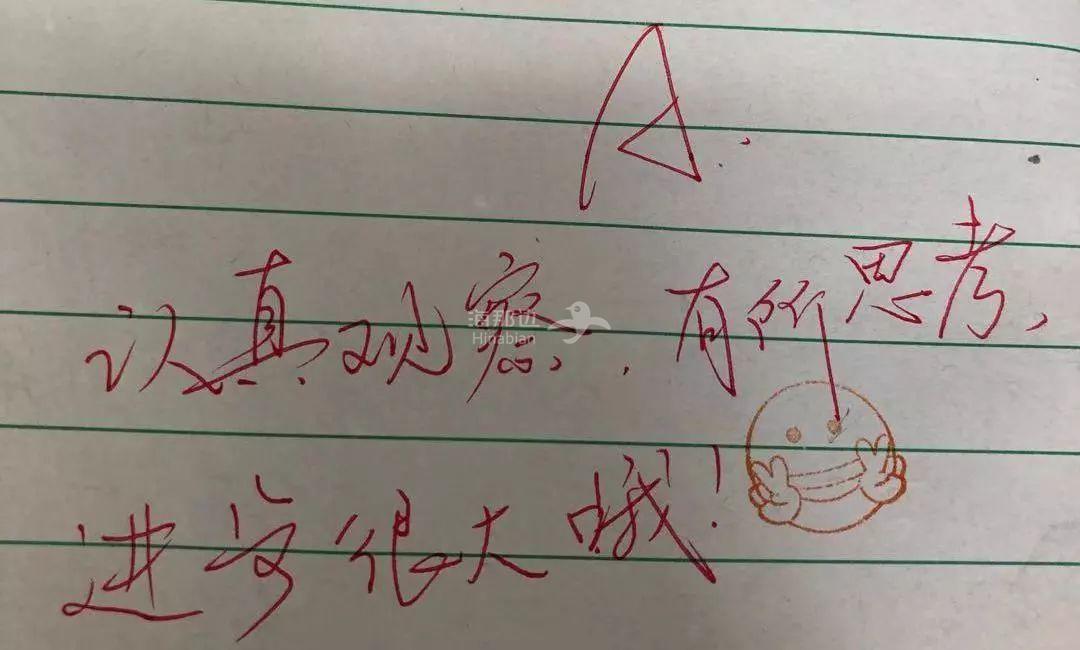 A.
认真观察,有所思考,
海那边
Hinabian
进步很大哦!